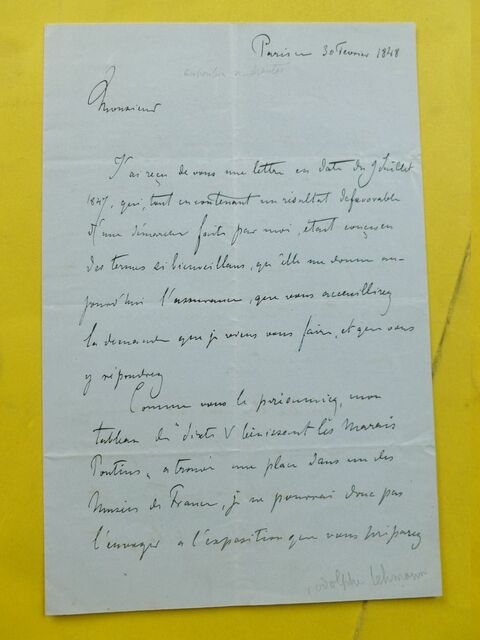 Paris 30 Fevrier 1848
Monsieur
J'ai reçu de vous une lettre en date du 9 Juillet
1847, qui, tout en contenant un résultat defavorable
d'une démarche faite par moi, etant conçue en
des termes si bienveillans, qu'elle me donne au-
jourd'hui l'assurance, que vous accueillerez
la demande que je viens vous faire, et que vous
y répondrez
Comme vous le present, mon
tableau du "Sixte V bénissant les Marais
Pontins" a trouvé une place dans un des
Musées de France, je ne pourrai donc pas
l'envoyer a l'exposition que vous préparez
Rodolphe Lehmann